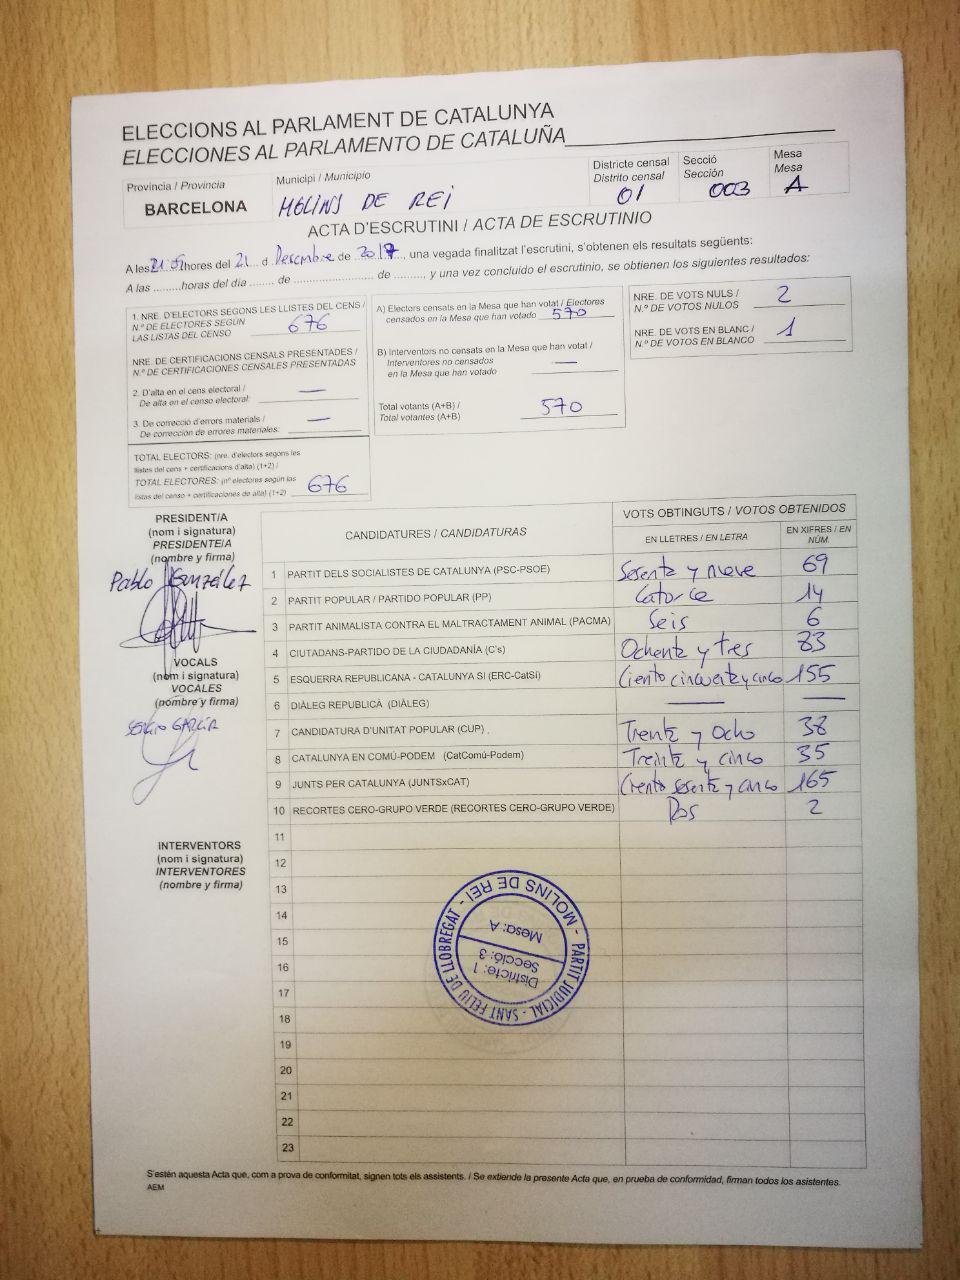 ELECCIONS AL PARLAMENT DE CATALUNYA
ELECCIONES AL PARLAMENTO DE CATALUÑA
Provincia / Provincia
BARCELONA
Municipi / Municipio
MOLINS DE REI
Districte censal
Distrito censal
01
Secció
Sección
003
Mesa
Mesa
A
ACTA D'ESCRUTINI / ACTA DE ESCRUTINIO
A les 21:05 hores del 21 d Desembre de 2017, una vegada finalitzat l'escrutini, s'obtenen els resultats següents:
A las .........horas del día ........ de ........................ de ........., y una vez concluido el escrutinio, se obtienen los siguientes resultados:
1. NRE. D'ELECTORS SEGONS LES LLISTES DEL CENS /
N.º DE ELECTORES SEGÚN
LAS LISTAS DEL CENSO 676
NRE. DE CERTIFICACIONS CENSALS PRESENTADES /
N.º DE CERTIFICACIONES CENSALES PRESENTADAS
2. D'alta en el cens electoral /
De alta en el censo electoral: —
3. De correcció d'errors materials /
De corrección de errores materiales: —
TOTAL ELECTORS: (nre. d'electors segons les
llistes del cens + certificacions d'alta) (1+2) /
TOTAL ELECTORES: (nº electores según las
listas del censo + certificaciones de alta) (1+2) 676
A) Electors censats en la Mesa que han votat / Electores
censados en la Mesa que han votado 570
B) Interventors no censats en la Mesa que han votat /
Interventores no censados
en la Mesa que han votado —
Total votants (A+B) /
Total votantes (A+B) 570
NRE. DE VOTS NULS /
N.º DE VOTOS NULOS 2
NRE. DE VOTS EN BLANC /
N.º DE VOTOS EN BLANCO 1
PRESIDENT/A
(nom i signatura)
PRESIDENTE/A
(nombre y firma)
Pablo González
VOCALS
(nom i signatura)
VOCALES
(nombre y firma)
SERGIO GARCÍA
INTERVENTORS
(nom i signatura)
INTERVENTORES
(nombre y firma)
CANDIDATURES / CANDIDATURAS
VOTS OBTINGUTS / VOTOS OBTENIDOS
EN LLETRES / EN LETRA
EN XIFRES / EN
NÚM.
1 PARTIT DELS SOCIALISTES DE CATALUNYA (PSC-PSOE) Sesenta y nueve 69
2 PARTIT POPULAR / PARTIDO POPULAR (PP) Catorce 14
3 PARTIT ANIMALISTA CONTRA EL MALTRACTAMENT ANIMAL (PACMA) Seis 6
4 CIUTADANS-PARTIDO DE LA CIUDADANÍA (C's) Ochenta y tres 83
5 ESQUERRA REPUBLICANA - CATALUNYA SÍ (ERC-CatSí) Ciento cincuenta y cinco 155
6 DIÀLEG REPUBLICÀ (DIÀLEG) — —
7 CANDIDATURA D'UNITAT POPULAR (CUP) Trenta y Ocho 38
8 CATALUNYA EN COMÚ-PODEM (CatComú-Podem) Treinta y cinco 35
9 JUNTS PER CATALUNYA (JUNTSxCAT) Ciento sesenta y cinco 165
10 RECORTES CERO-GRUPO VERDE (RECORTES CERO-GRUPO VERDE) Dos 2
11
12
13
14
15
16
17
18
19
20
21
22
23
MOLINS DE REI - PARTIT JUDICIAL - SANT FELIU DE LLOBREGAT -
Districte: 1
Secció: 3
Mesa: A
S'estén aquesta Acta que, com a prova de conformitat, signen tots els assistents. / Se extiende la presente Acta que, en prueba de conformidad, firman todos los asistentes.
AEM